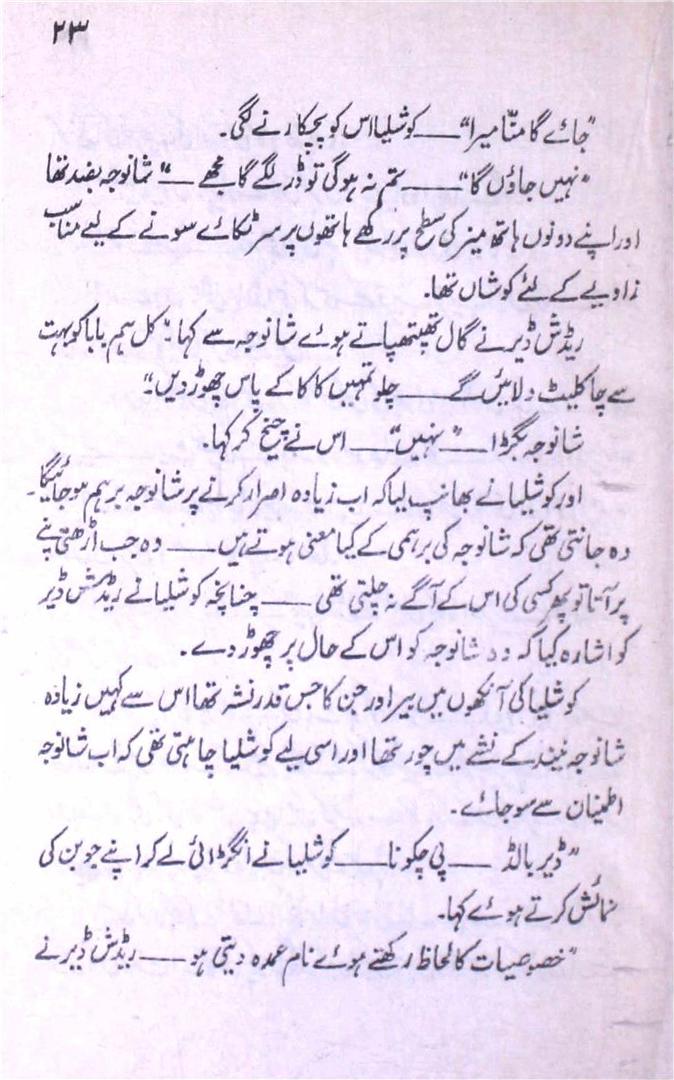 ۲۳
"جائے گا منّا میرا" ــــ کوشلیا اس کو پچکارنے لگی۔
"نہیں جاؤں گا" ــــ تم نہ ہوگی تو ڈر لگے گا مجھے ــــ" شانوجہ بضد تھا
اور اپنے دونوں ہاتھ میز کی سطح پر رکھے ہاتھوں پر سر ٹکائے سونے کے لیے مناسب
زاویے کے لئے کوشاں تھا۔
ریڈش ڈیر نے گال تھپتھپاتے ہوئے شانوجہ سے کہا: کل ہم بابا کو بہت
سے چاکلیٹ دلائیں گے ــــ چلو تمہیں کاکا کے پاس چھوڑ دیں"
شانوجہ بگڑا ــــ "نہیں" ــــ اس نے چیخ کر کہا۔
اور کوشلیا نے بھانپ لیا کہ اب زیادہ اصرار کرنے پر شانوجہ برہم ہو جائیگا۔
وہ جانتی تھی کہ شانوجہ کی برہمی کے کیا معنی ہوتے ہیں ــــ وہ جب اڑھتی پنے
پر آتا تو پھر کسی کی اس کے آگے نہ چلتی تھی ــــ چنانچہ کوشلیا نے ریڈش ڈیر
کو اشارہ کیا کہ وہ شانوجہ کو اس کے حال پر چھوڑ دے۔
کوشلیا کی آنکھوں میں بیر اور جن کا جس قدر نشہ تھا اس سے کہیں زیادہ
شانوجہ نیند کے نشے میں چور تھا اور اسی لیے کوشلیا چاہتی تھی کہ اب شانوجہ
اطمینان سے سو جائے۔
"ڈیر بالڈ ــــ پی چکو نا ــــ کوشلیا نے انگڑائی لے کر اپنے جوبن کی
نمائش کرتے ہوئے کہا۔
"خصوصیات کا لحاظ رکھتے ہوئے نام عمدہ دیتی ہو ــــ ریڈش ڈیر نے